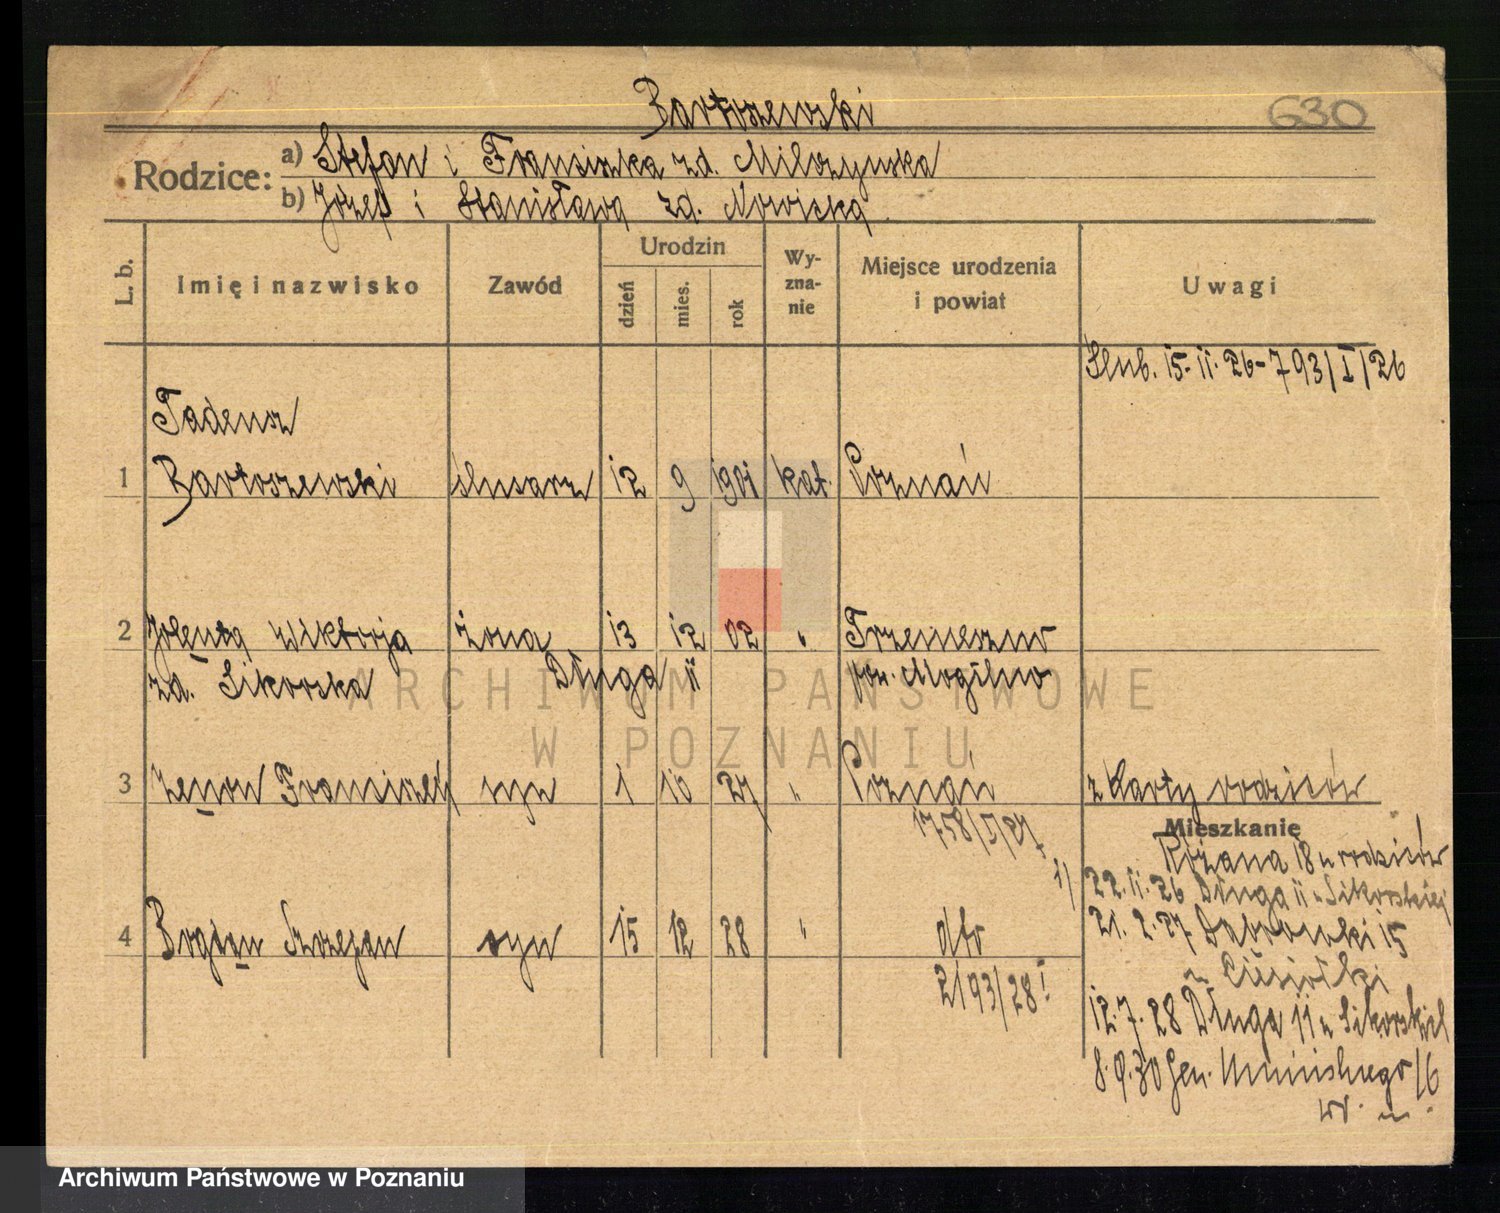 Bartoszewski
630
Rodzice: a) Stefan i Franciszka zd. Milczyńska
b) Józef i Stanisława zd. Nowicka
L. b. Imię i nazwisko Zawód Urodzin dzień mies. rok Wyznanie Miejsce urodzenia i powiat Uwagi
Ślub. 15.11.26-793/I/26
Tadeusz
1 Bartoszewski ślusarz 12 9 1901 kat. Poznań
2 Jolenta Wiktorja żona 13 12 02 " Trzemeszno
zd. Sikorska Długa 11 pow. Mogilno
ARCHIWUM PAŃSTWOWE
W POZNANIU
3 Zenon Franciszek syn 1 10 27 " Poznań z karty rodziców
1758/I/27
Mieszkanie
Różana 18 u rodziców
1) 22.11.26 Długa 11 u Sikorskiej
21.2.27 Dąbrowski 15
4 Bogdan Szczepan syn 15 12 28 " dto
u
2193/28 I
12.7.28 Długa 11 u Sikorskich
8.9.30 Gen. Umińskiego 16
Archiwum Państwowe w Poznaniu